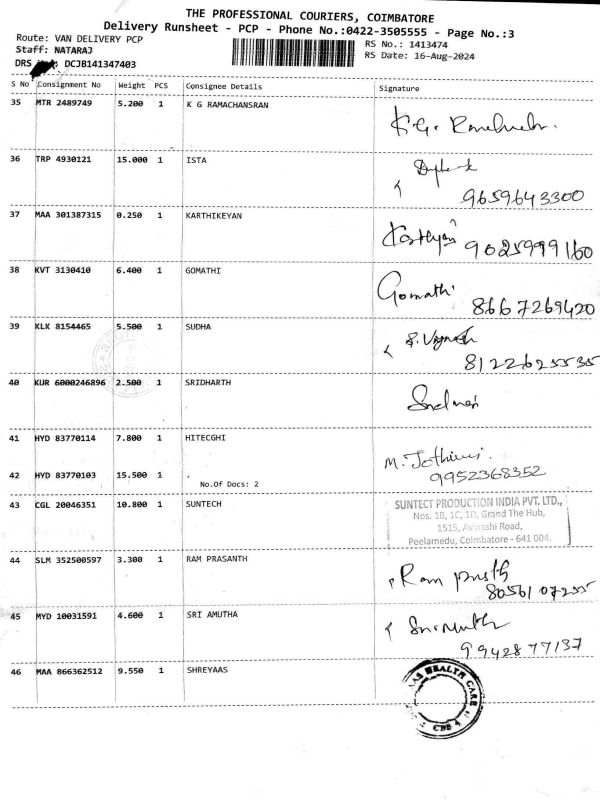 THE PROFESSIONAL COURIERS, COIMBATORE
Delivery Runsheet - PCP - Phone No.:0422-3505555 - Page No.:3
Route: VAN DELIVERY PCP
RS No.: 1413474
Staff: NATARAJ
RS Date: 16-Aug-2024
DRS DCJB141347403
S No Consignment No Weight PCS Consignee Details Signature
35 MTR 2489749 5.200 1 K G RAMACHANSRAN
36 TRP 4930121 15.000 1 ISTA
9659643300
37 MAA 301387315 0.250 1 KARTHIKEYAN
9025999160
38 KVT 3130410 6.400 1 GOMATHI
Gomathi
8667269420
39 KLK 8154465 5.500 1 SUDHA
8122625535
40 KUR 6000246896 2.500 1 SRIDHARTH
41 HYD 83770114 7.800 1 HITECGHI
M. Jothi
42 HYD 83770103 15.500 1 No.Of Docs: 2
9952368352
43 CGL 20046351 10.800 1 SUNTECH
SUNTECT PRODUCTION INDIA PVT. LTD.,
Nos. 1B, 1C, 1D, Grand The Hub,
1515, Avinashi Road,
Peelamedu, Coimbatore - 641 004.
44 SLM 352500597 3.300 1 RAM PRASANTH
Ram
8056107255
45 MYD 10031591 4.600 1 SRI AMUTHA
9942877137
46 MAA 866362512 9.550 1 SHREYAAS
HEALTH CARE
CBE